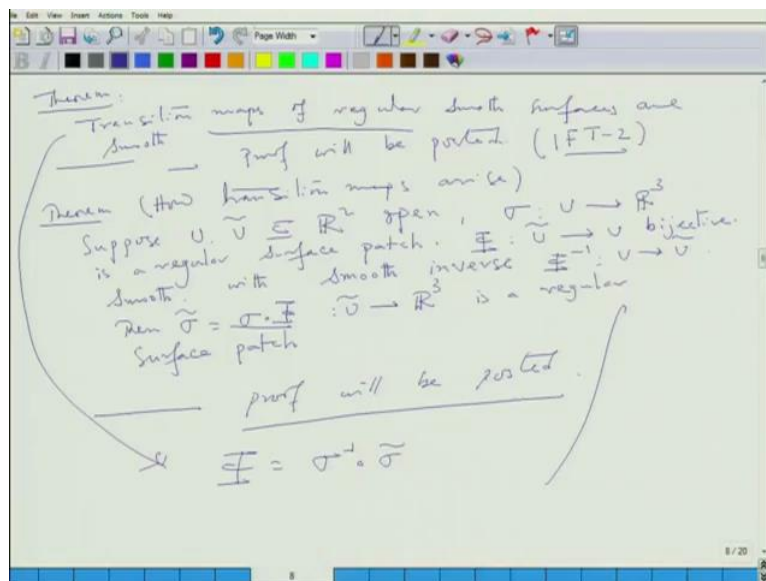 File Edit View Insert Actions Tools Help
Page Width
B I
Theorem:
Transition maps of regular smooth surfaces are
smooth — proof will be posted. (IFT-2)
Theorem (How transition maps arise)
Suppose U, Ũ ⊆ ℝ² open, σ: U → ℝ³
is a regular surface patch. Φ: Ũ → U bijective.
smooth. with smooth inverse Φ⁻¹: U → Ũ.
Then σ̃ = σ∘Φ : Ũ → ℝ³ is a regular
surface patch
— proof will be posted.
Φ = σ⁻¹∘σ̃
8 / 20
8